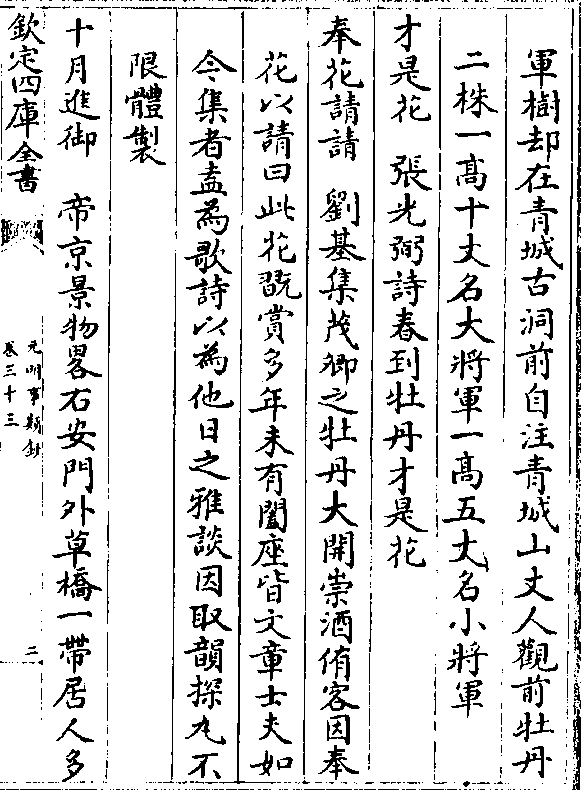 軍樹却在青城古洞前自注青城山丈人觀前牡丹
二株一髙十丈名大將軍一髙五丈名小將軍
才是花　張光弼詩春到牡丹才是花
奉花請請　劉基集茂卿之牡丹大開崇酒侑客因奉
花以請曰此花既賞多年未有闔座皆文章士夫如
今集者盍為歌詩以為他日之雅談因取韻探丸不
限體製
十月進御　帝京景物畧右安門外草橋一帶居人多
欽定四庫全書
元明事類鈔
卷三十三
二